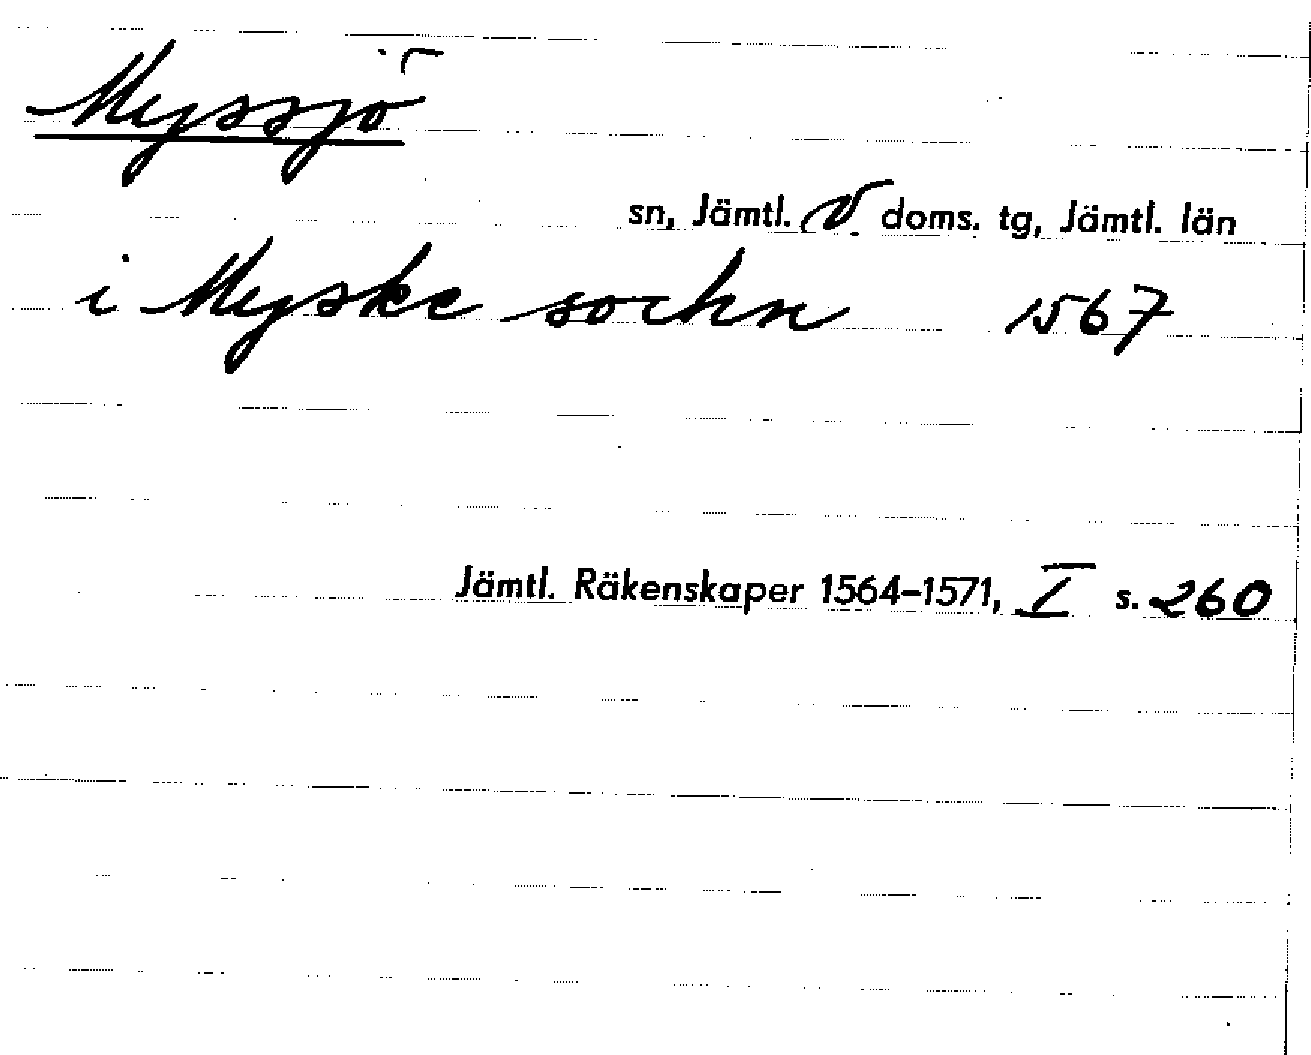 Myssjö
sn, Jämtl. V. doms. tg, Jämtl. län
i Myske sochn 1567
Jämtl. Räkenskaper 1564–1571, I s. 260